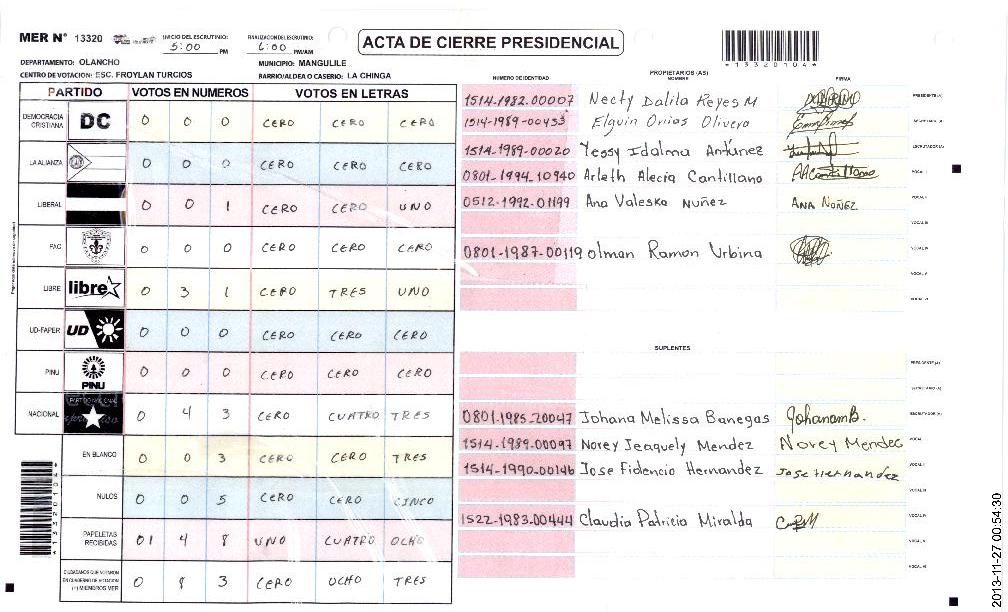 MER N° 13320
INICIO DEL ESCRUTINIO: 5:00 PM
FINALIZACION DEL ESCRUTINIO: 6:00 PM/AM
ACTA DE CIERRE PRESIDENCIAL
*13320104*
DEPARTAMENTO: OLANCHO
MUNICIPIO: MANGULILE
CENTRO DE VOTACION: ESC. FROYLAN TURCIOS
BARRIO/ALDEA O CASERIO: LA CHINGA
PARTIDO VOTOS EN NUMEROS VOTOS EN LETRAS
DEMOCRACIA CRISTIANA DC 0 0 0 CERO CERO CERO
LA ALIANZA 0 0 0 CERO CERO CERO
LIBERAL 0 0 1 CERO CERO UNO
FAC 0 0 0 CERO CERO CERO
LIBRE libre 0 3 1 CERO TRES UNO
UD-FAPER UD 0 0 0 CERO CERO CERO
PINU PINU 0 0 0 CERO CERO CERO
NACIONAL PARTIDO NACIONAL 0 4 3 CERO CUATRO TRES
EN BLANCO 0 0 3 CERO CERO TRES
NULOS 0 0 5 CERO CERO CINCO
PAPELETAS RECIBIDAS 01 4 8 UNO CUATRO OCHO
CIUDADANOS QUE VOTARON EN CUADERNO DE VOTACION (+) MIEMBROS MER 0 8 3 CERO OCHO TRES
PROPIETARIOS (AS)
NUMERO DE IDENTIDAD NOMBRE FIRMA
1514-1982-00007 Necty Dalila Reyes M PRESIDENTE(A)
1514-1989-00453 Elguin Onias Olivera SECRETARIO(A)
1514-1989-00020 Yessy Idalma Antúnez ESCRUTADOR(A)
0801-1994-10940 Arleth Alecia Cantillano AACantillano VOCAL I
0512-1992-01199 Ana Valeska Nuñez ANA NUÑEZ VOCAL II
VOCAL III
0801-1987-00119 olman Ramon Urbina VOCAL IV
VOCAL V
VOCAL VI
SUPLENTES
PRESIDENTE(A)
SECRETARIO(A)
0801-1985-20047 Johana Melissa Banegas JohanamB. ESCRUTADOR(A)
1514-1989-00097 Norey Jeaquely Mendez Norey Mendec VOCAL I
1514-1990-00146 Jose Fidencio Hernandez Jose Hernandez VOCAL II
VOCAL III
1522-1983-00444 Claudia Patricia Miralda VOCAL IV
VOCAL V
VOCAL VI
2013-11-27 00:54:30